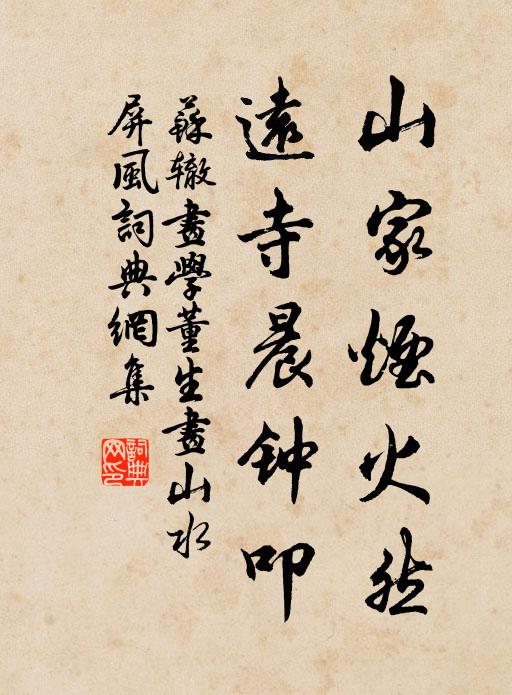 山家煙火然
遠寺晨钟叩
蘇辙畫學董生畫山水
屏風詞典網集
詞典网印